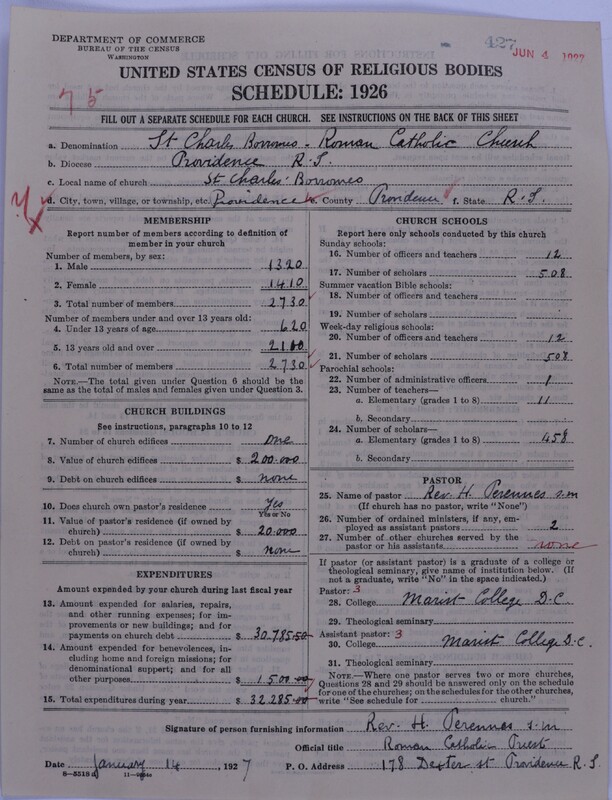 DEPARTMENT OF COMMERCE
BUREAU OF THE CENSUS
WASHINGTON
427
JUN 4 1927
UNITED STATES CENSUS OF RELIGIOUS BODIES
SCHEDULE: 1926
75
FILL OUT A SEPARATE SCHEDULE FOR EACH CHURCH. SEE INSTRUCTIONS ON THE BACK OF THIS SHEET
a. Denomination St Charles Borromeo - Roman Catholic Church
b. Diocese Providence R.I.
c. Local name of church St Charles Borromeo
d. City, town, village, or township, etc. Providence e. County Providence f. State R.I.
MEMBERSHIP
Report number of members according to definition of
member in your church
Number of members, by sex:
1. Male 1320
2. Female 1410
3. Total number of members 2730
Number of members under and over 13 years old:
4. Under 13 years of age 620
5. 13 years old and over 2110
6. Total number of members 2730
NOTE.—The total given under Question 6 should be
same as the total of males and females given under Question 3.
CHURCH BUILDINGS
See instructions, paragraphs 10 to 12
7. Number of church edifices One
8. Value of church edifices $ 200.000
9. Debt on church edifices $ none
10. Does church own pastor's residence Yes
Yes or No
11. Value of pastor's residence (if owned by
church) $ 20.000
12. Debt on pastor's residence (if owned by
church) $ none
EXPENDITURES
Amount expended by your church during last fiscal year
13. Amount expended for salaries, repairs,
and other running expenses; for im-
provements or new buildings; and for
payments on church debt $ 30.785.50
14. Amount expended for benevolences, in-
cluding home and foreign missions; for
denominational support; and for all
other purposes $ 1500.00
15. Total expenditures during year $ 32.285.00
CHURCH SCHOOLS
Report here only schools conducted by this church
Sunday schools:
16. Number of officers and teachers 12
17. Number of scholars 508
Summer vacation Bible schools:
18. Number of officers and teachers
19. Number of scholars
Week-day religious schools:
20. Number of officers and teachers 12
21. Number of scholars 508
Parochial schools:
22. Number of administrative officers 1
23. Number of teachers—
a. Elementary (grades 1 to 8) 11
b. Secondary
24. Number of scholars—
a. Elementary (grades 1 to 8) 458
b. Secondary
PASTOR
25. Name of pastor Rev. H. Perennes s.m
(If church has no pastor, write "None")
26. Number of ordained ministers, if any, em-
ployed as assistant pastors 2
27. Number of other churches served by the
pastor or his assistants none
If pastor (or assistant pastor) is a graduate of a college or
theological seminary, give name of institution below. (If
not a graduate, write "No" in the space indicated.)
Pastor: 3
28. College Marist College D.C
29. Theological seminary
Assistant pastor: 3
30. College Marist College D.C.
31. Theological seminary
NOTE.—Where one pastor serves two or more churches,
Questions 28 and 29 should be answered only on the schedule
for one of the churches; on the schedules for the other churches,
write "See schedule for church."
Signature of person furnishing information Rev. H. Perennes s.m
Official title Roman Catholic Priest
Date January 14, 1927 P. O. Address 178 Dexter st Providence R.I.